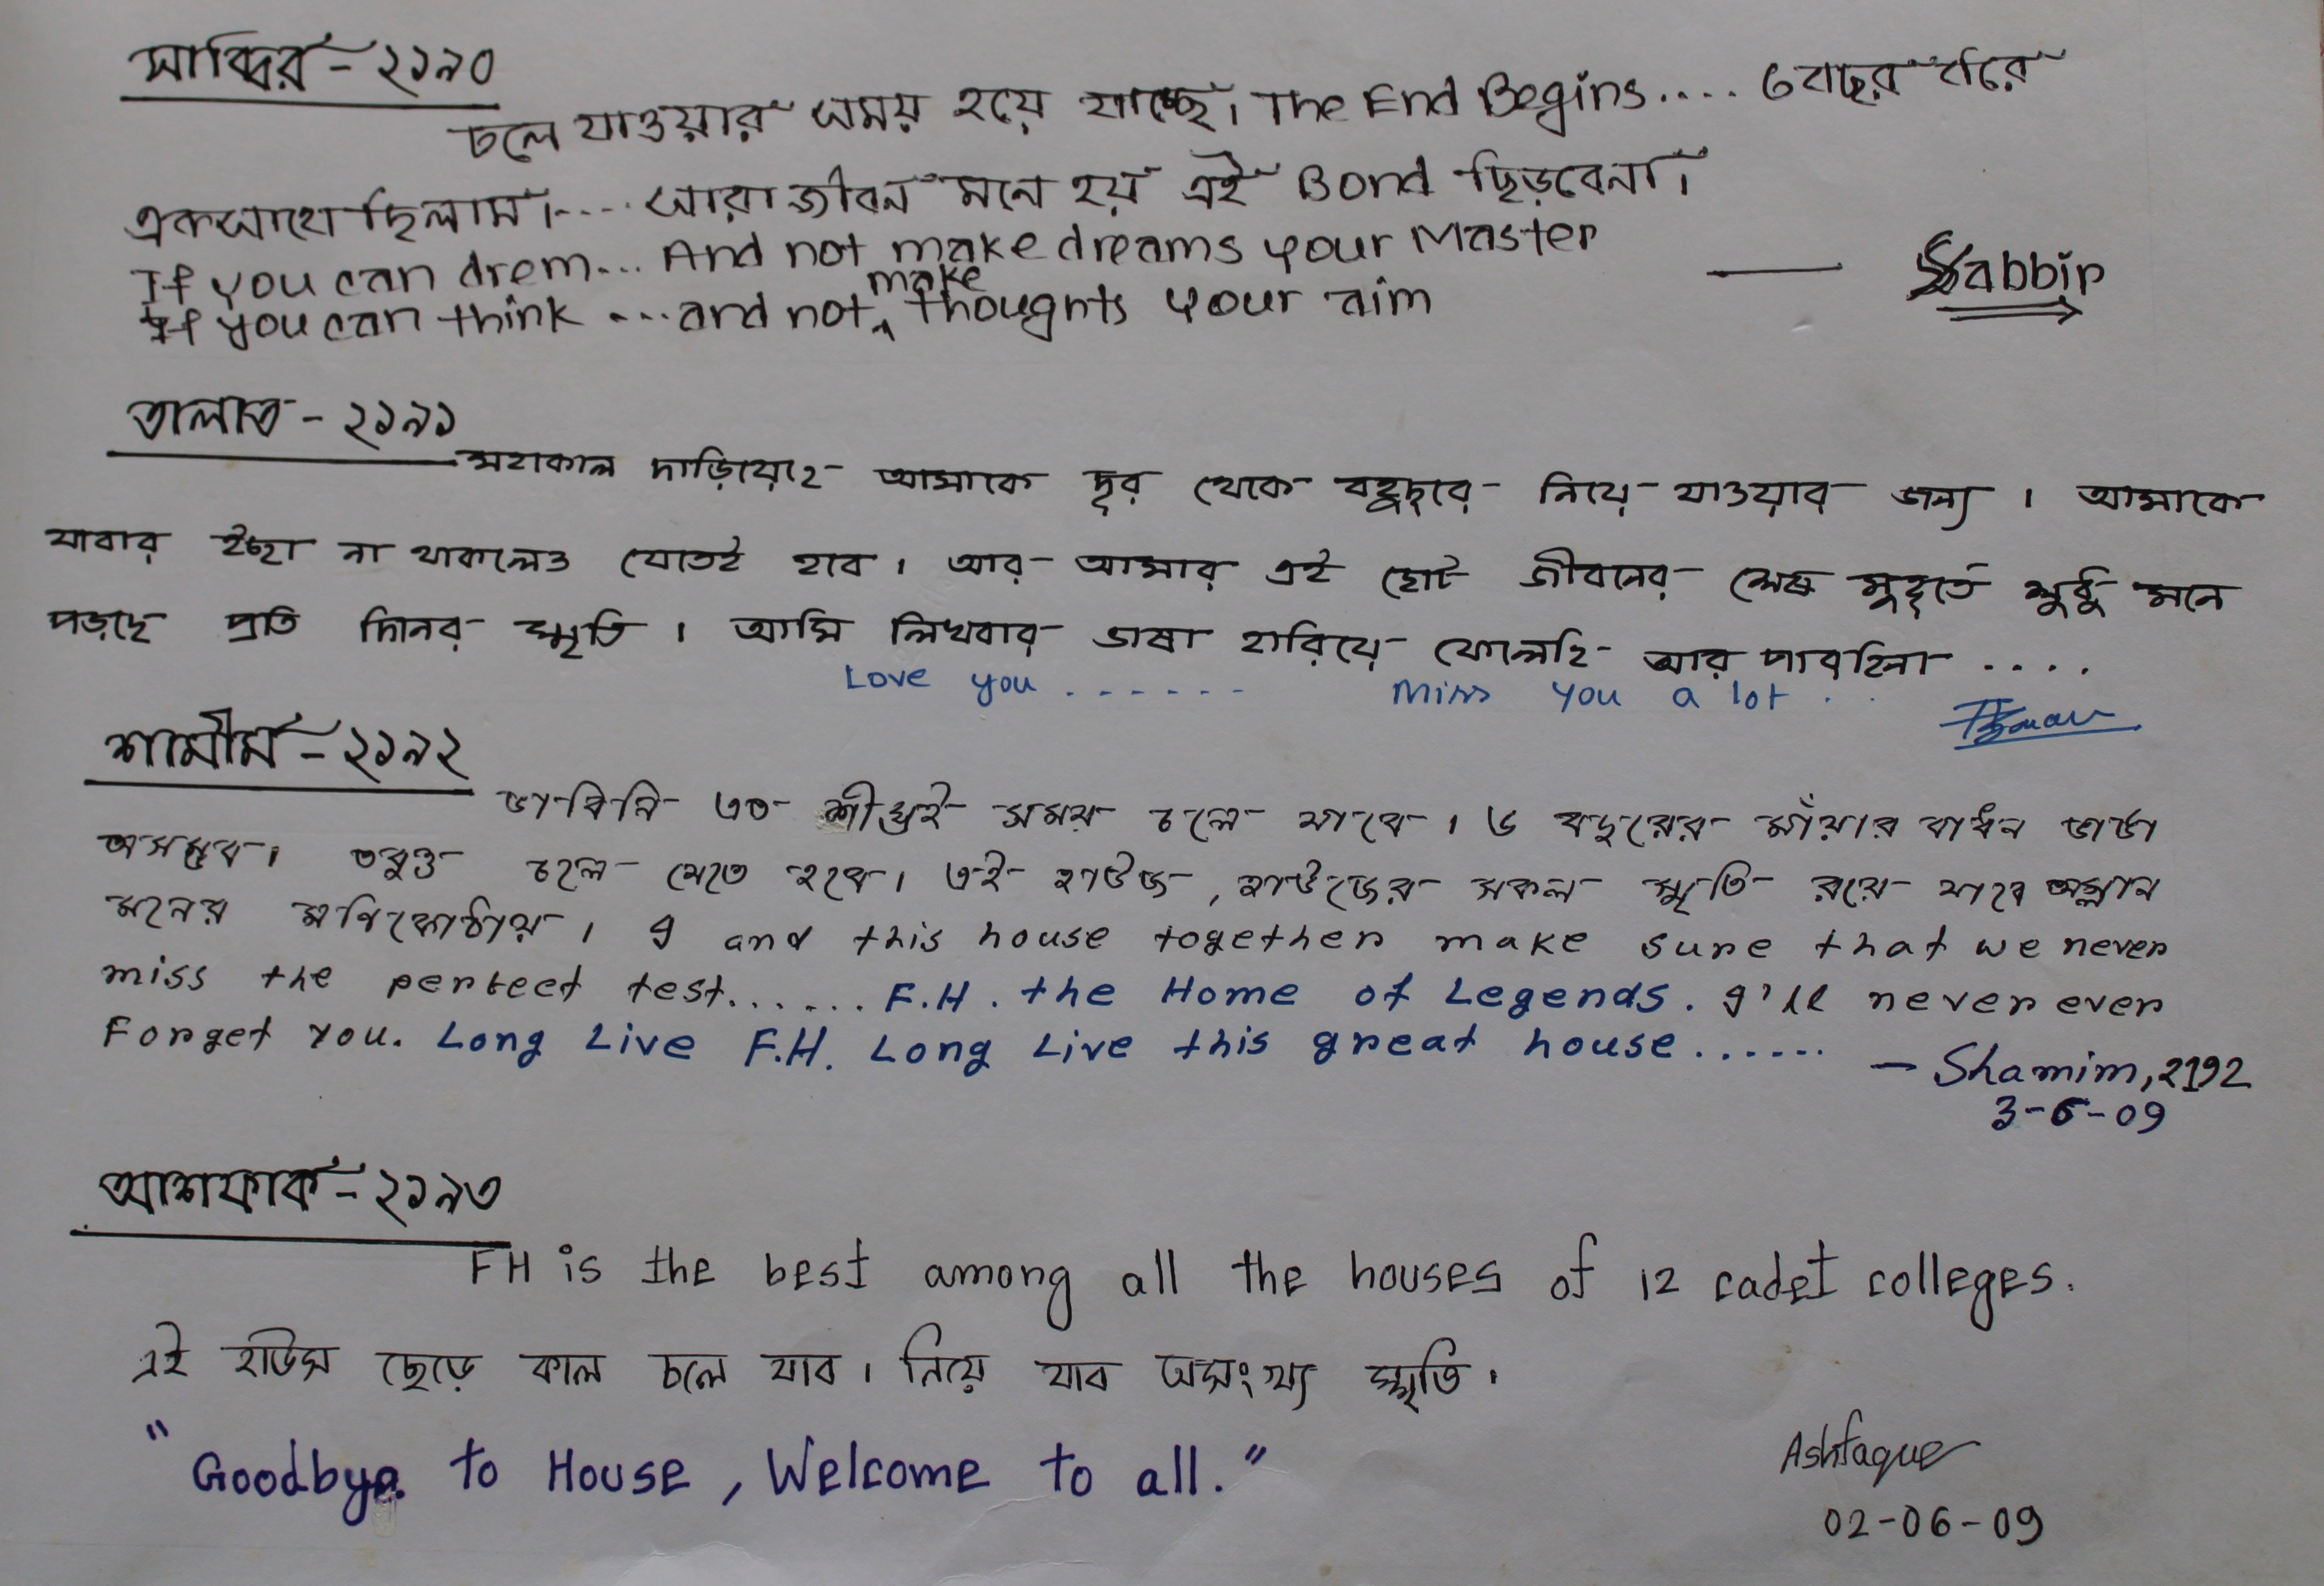 সাব্বির - ২১৯০
চলে যাওয়ার সময় হয়ে যাচ্ছে। The End Begins.... ৬ বছর ধরে
একসাথে ছিলাম।.... সারা জীবন মনে হয় এই Bond ছিড়বেনা।
If you can drem... And not make dreams your Master
If you can think ... and not make thoughts your aim
— Sabbir
তালাত - ২১৯১
মহাকাল দাড়িয়েছে আমাকে দূর থেকে বহুদূরে নিয়ে যাওয়ার জন্য । আমাকে
যাবার ইচ্ছা না থাকলেও যেতেই হবে । আর আমার এই ছোট জীবনের শেষ মুহূর্তে শুধু মনে
পড়ছে প্রতি দিনের স্মৃতি । আমি লিখবার ভাষা হারিয়ে ফেলেছি আর পারছিনা ....
Love you ....... Miss you a lot ..
শামীম - ২১৯২
ভাবিনি এত শীঘ্রই সময় চলে যাবে । ৬ বছরের মাঁয়ার বাধন ভাঙা
অসম্ভব । তবুও চলে যেতে হবে । এই হাউজ , হাউজের সকল স্মৃতি রয়ে যাবে অম্লান
মনের মণিকোঠায় । I and this house together make sure that we never
miss the perfect test...... F.H. the Home of Legends. I'll never ever
Forget you. Long Live F.H. Long Live this great house......
— Shamim, 2192
3-6-09
আশফাক - ২১৯৩
FH is the best among all the houses of 12 cadet colleges.
এই হাউস ছেড়ে কাল চলে যাব । নিয়ে যাব অসংখ্য স্মৃতি ।
"Goodbye to House, Welcome to all."
Ashfaque
02-06-09